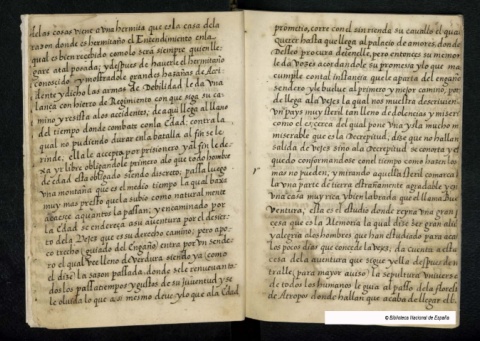 delas cosas viene a vna hermita que es la casa dela
razon donde es hermitaño el Entendimiento enla
qual es bien recebido como lo será siempre quien lle-
gare a tal posada; y despues de hauerle el hermitaño
conocido, y mostradole grandes hazañas de Acci-
dente y dicho las armas de Debilidad le da vna
lança con hierro de Regimiento con que siga su ca-
mino y resista alos accidentes; de aqui llega al llano
del tiempo donde combate con la Edad: contra la
qual no pudiendo durar enla batalla al fin se le
rinde; ella le accepta por prisionero y al fin le de-
xa yr libre obligandole primero a lo que todo hombre
de edad esta obligado siendo discreto; passa luego
vna montaña que es el medio tiempo la qual baxa
muy mas presto que la subio como naturalmente
acaece aquantos la passan; y encaminado por
la Edad se endereça asu auentura por el desier-
to dela Vejes que es su derecho camino; pero apo-
co trecho (guiado del Engaño) entra por vn sende-
ro el qual ve lleno de verdura siendo ya (como
el dize) la sazon passada, donde se le renueuan to-
dos los passatiempos y gustos de su juuentud y se
le oluida lo que assi mesmo deue y lo que ala Edad
prometio, corre con el sin rienda su cauallo el qual
quiere hasta que llega al palacio de amores, donde
Desseo procura detenelle, pero entonces su memoria
le da vozes acordandole su promessa y lo que ma
cumple contal instancia que le aparta del engaño
sendero y le buelue al primero y mejor camino, por
do llega ala vejes la qual nos muestra descriuien
vn pays muy steril tan lleno de dolencias y miseri
como el es, cerca del qual pone vna ysla mucho m
miserable que es la Decrepitud; dize que no hallan
salida de vejes sino ala Decrepitud se conorta y es
quedo conformandose con el tiempo como hazen los
mas no pueden, y mirando aquella steril comarca
la vna parte de tierra estrañamente agradable y en
vna casa muy rica y bien labrada que el llama Bue
Ventura; esta es el estudio donde reyna vna gran p
cesa que es la Memoria la qual dize ser gran aliu
y alegria alos hombres que han estudiado para aco
los pocos dias que concede la Vejes; da cuenta a esta
cesa dela auentura que sigue y ella despues de n
tralle (para mayor auiso) la sepultura vniuerse
de todos los humanos le guia al passo dela floresta
de Atropos donde hallan que acaba de llegar el b.
© Biblioteca Nacional de España